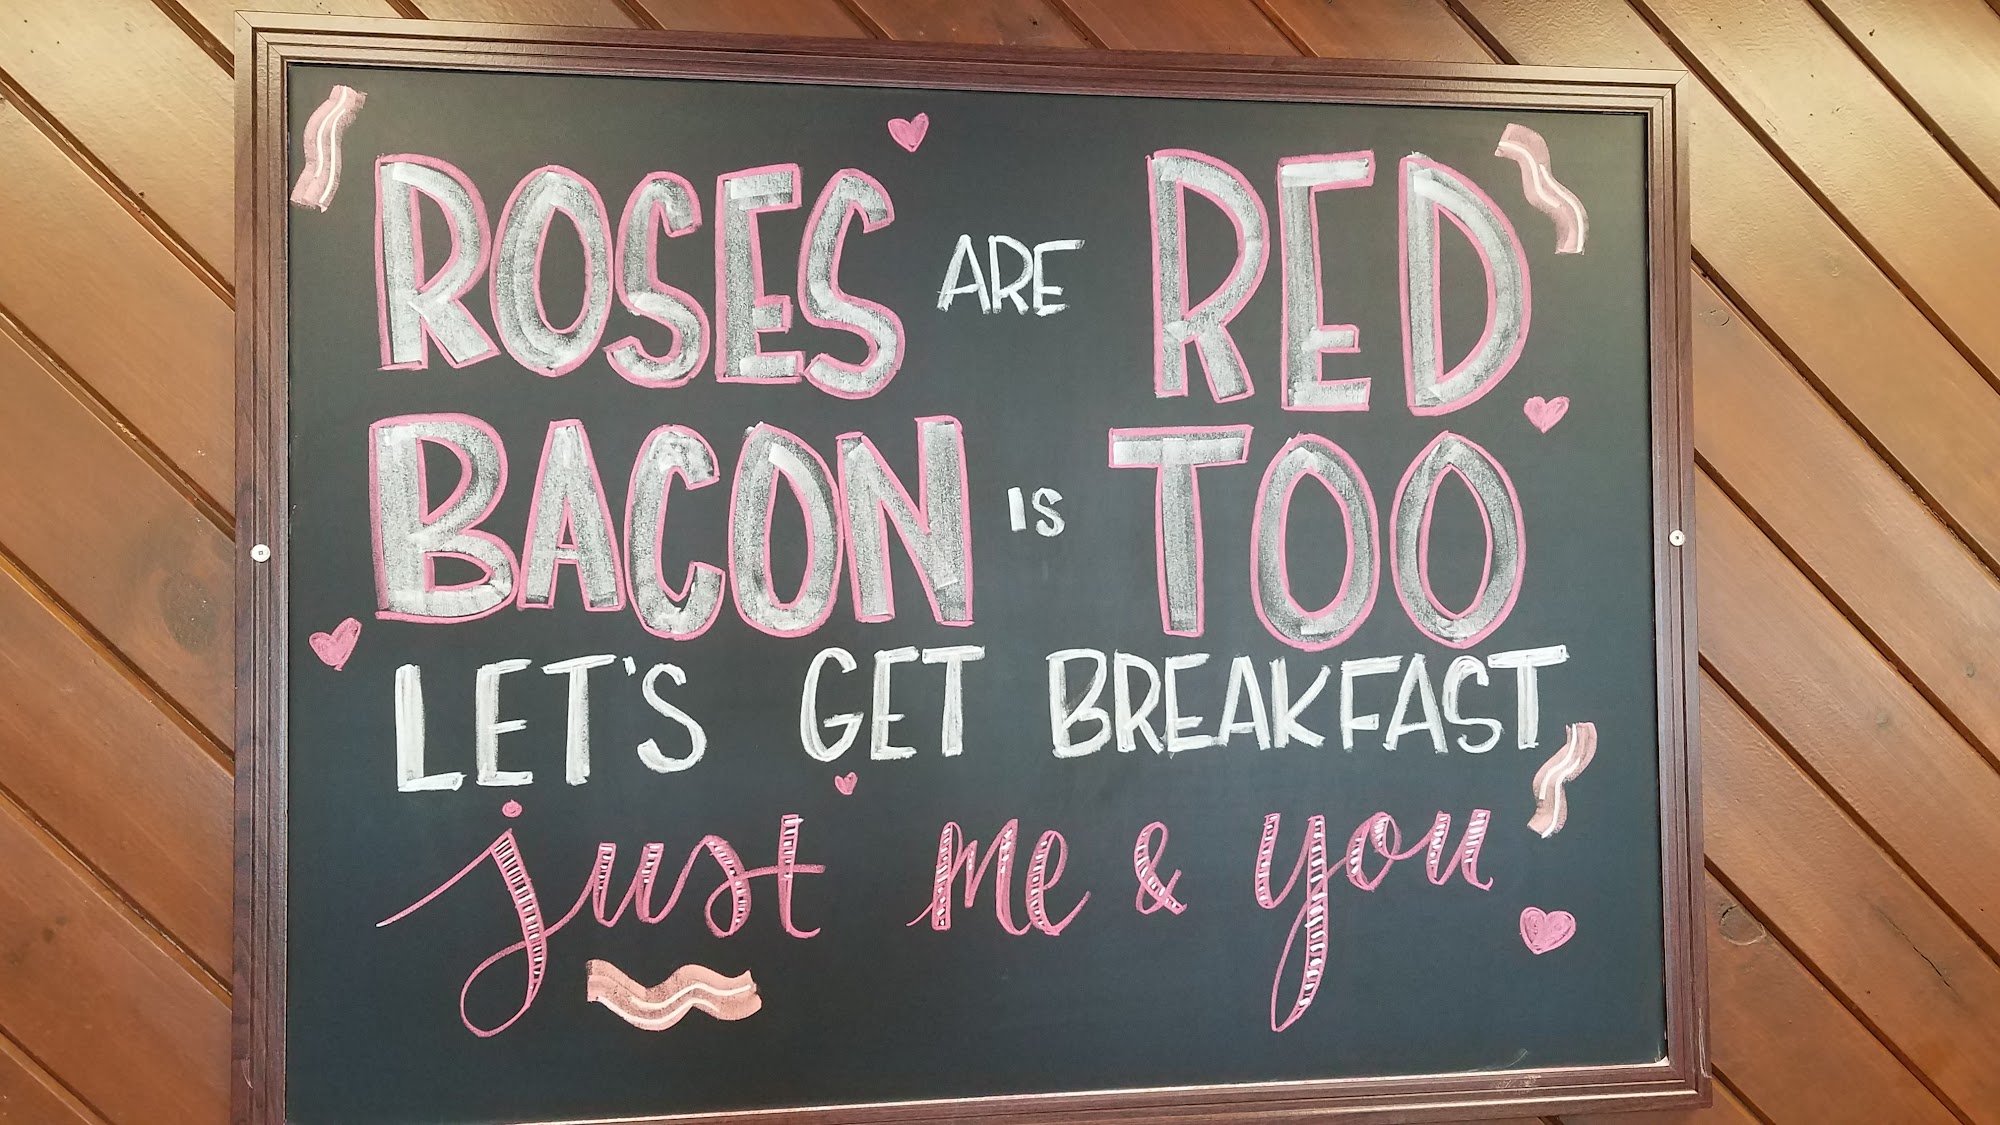 ROSES ARE RED
BACON IS TOO
LET'S GET BREAKFAST
just me & you